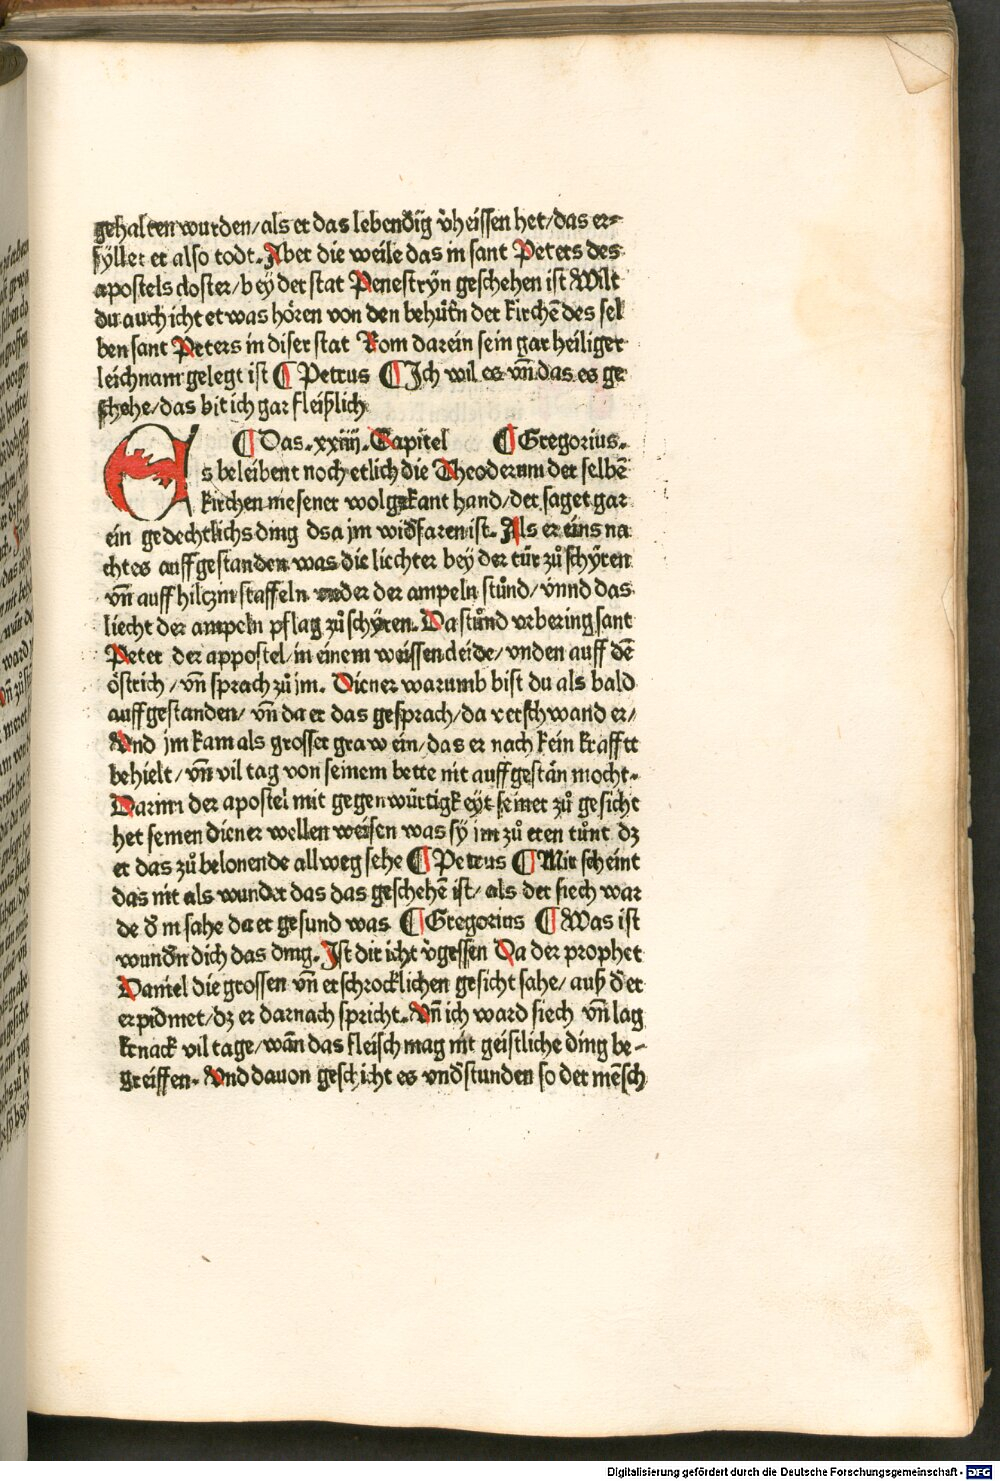 gehalten wurden/als er das lebendig v̈heissen het/das er⸗
fyllet er also todt. Aber die weile das in sant Peters des
apostels closter/bey der stat Penestryn geschehen ist Wilt
du auch icht etwas hören von den behütn̄ der kirchē des sel
ben sant Peters in diser stat Rom darein sein gar heiliger
leichnam gelegt ist ¶ Petrus ¶ Ich wil es vn̄ das es ge
schehe/das bit ich gar fleißlich
¶ Das .xxiiij. Capitel ¶ Gregorius.
Es beleibent noch etlich die Theoderum der selbē
kirchen mesener wolgekant hand/der saget gar
ein gedechtlichs ding dsa jm wid̄faren ist. Als er eins na
chtes auff gestanden was die liechter bey der tür zů schyren
vn̄ auff hilczin staffeln vnder der ampeln stůnd/vnnd das
liecht der ampeln pflag zů schyren. Da stůnd vrbering sant
Peter der appostel/in einem weissen cleide/vnden auff dē
östrich/vn̄ sprach zů jm. Diener warumb bist du als bald
auff gestanden/vn̄ da er das gesprach/da verschwand er/
Vnd jm kam als grosser graw ein/das er nach kein krafftt
behielt/vn̄ vil tag von seinem bette nit auff gestān mocht⸗
Darinn der apostel mit gegenwürtigkeyt seiner zů gesicht
het seinen diener wellen weisen was sy jm zů eren tůnt dz
er das zů belonende allweg sehe ¶ Petrus ¶ Mir scheint
das nit als wunder das das geschehē ist/als der siech war
de d̄ in sahe da er gesund was ¶ Gregorius ¶ Was ist
wund̄n dich das ding. Ist dir icht v̈gessen Da der prophet
Daniel die grossen vn̄ erschrocklichen gesicht sahe/auß d̄er
erpidmet/dz er darnach spricht. Vn̄ ich ward siech vn̄ lag
krnack vil tage/wān das fleisch mag nit geistliche ding be⸗
greiffen. Vnd dauon geschicht es vnd̄stunden so der mēsch
Digitalisierung gefördert durch die Deutsche Forschungsgemeinschaft - DFG